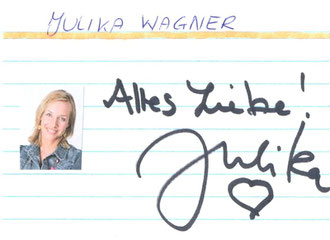 JULIKA WAGNER
Alles Liebe!
Julika